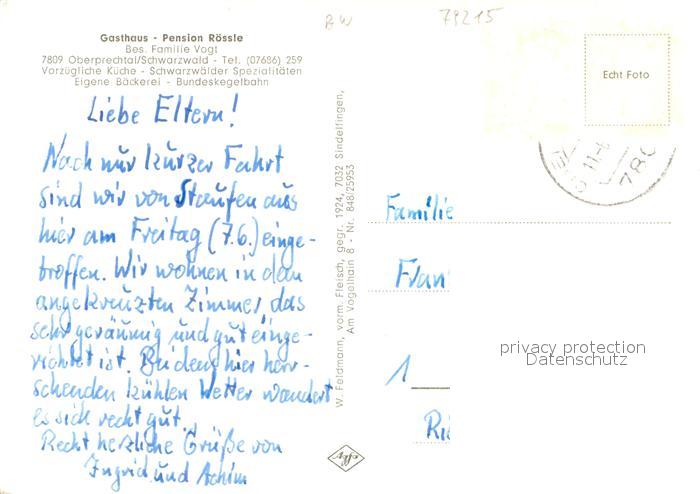 BW
79215
Gasthaus - Pension Rössle
Bes. Familie Vogt
7809 Oberprechtal/Schwarzwald - Tel. (07686) 259
Vorzügliche Küche - Schwarzwälder Spezialitäten
Eigene Bäckerei - Bundeskegelbahn
Liebe Eltern!
Nach nur kurzer Fahrt
sind wir von Staufen aus
hier am Freitag (7.6.) einge-
troffen. Wir wohnen in dem
angekreuzten Zimmer, das
sehr geräumig und gut einge-
richtet ist. Bei dem hier herr-
schenden kühlen Wetter wandert
es sich recht gut.
Recht herzliche Grüße von
Ingrid und Achim
W. Feldmann, vorm. Fleisch, gegr. 1924, 7032 Sindelfingen,
Am Vogelhain 8 - Nr. 848/25953
Agfa
Echt Foto
Familie
Fran
1
privacy protection
Datenschutz